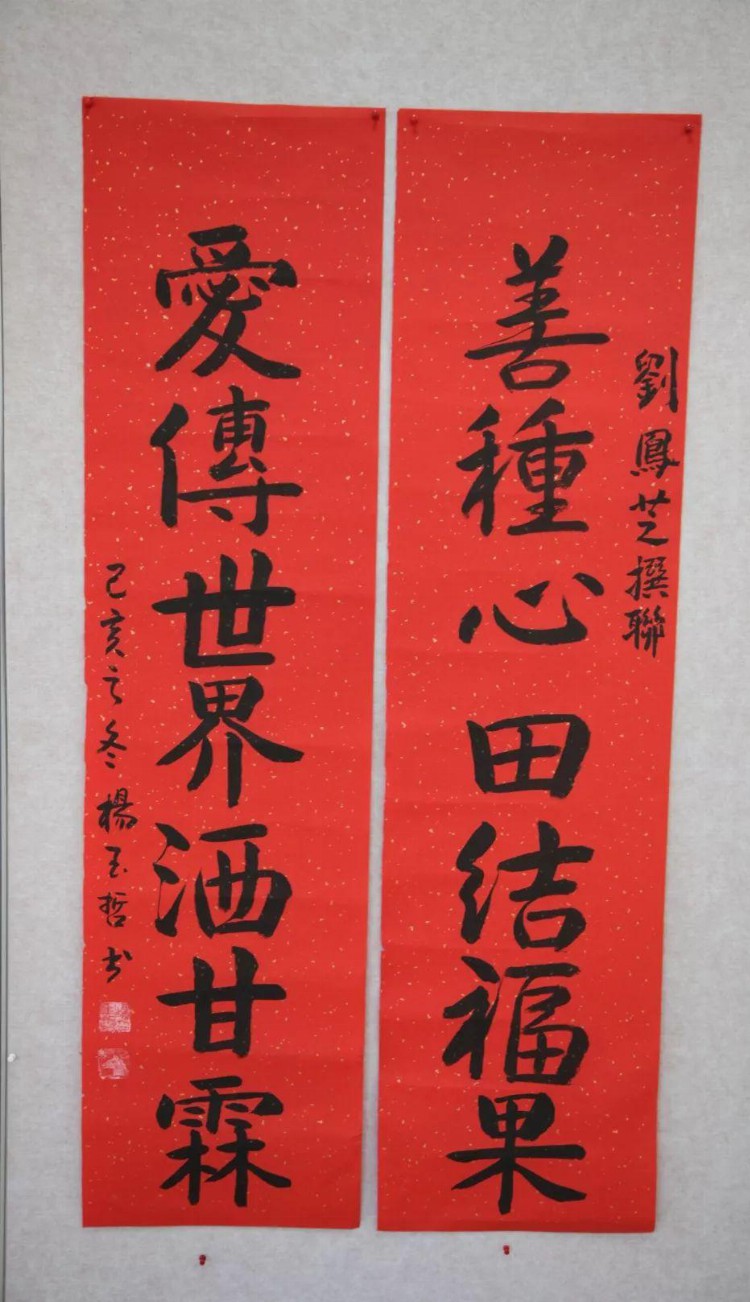 劉鳳芝撰聯
善種心田结福果
愛傳世界洒甘霖
己亥之冬楊玉哲书